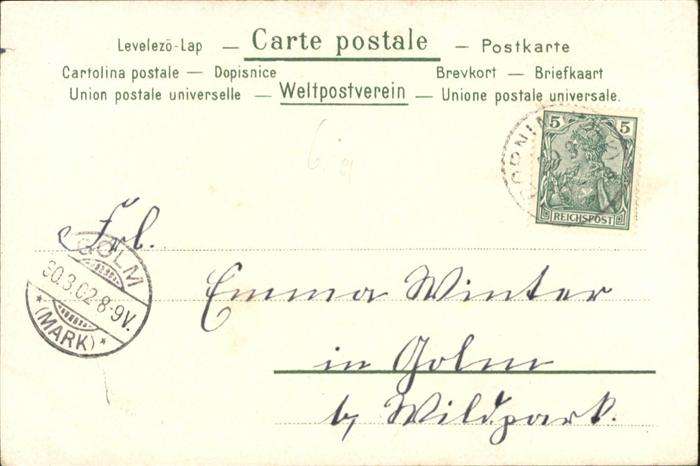 Levelező-Lap — Carte postale — Postkarte
Cartolina postale — Dopisnice Brevkort — Briefkaart
Union postale universelle — Weltpostverein — Unione postale universale.
5 5
REICHSPOST
BORNIM
Frl.
GOLM
30.3.02 8-9V.
* (MARK) *
Emma Winter
in Golm
b/ Wildpark.